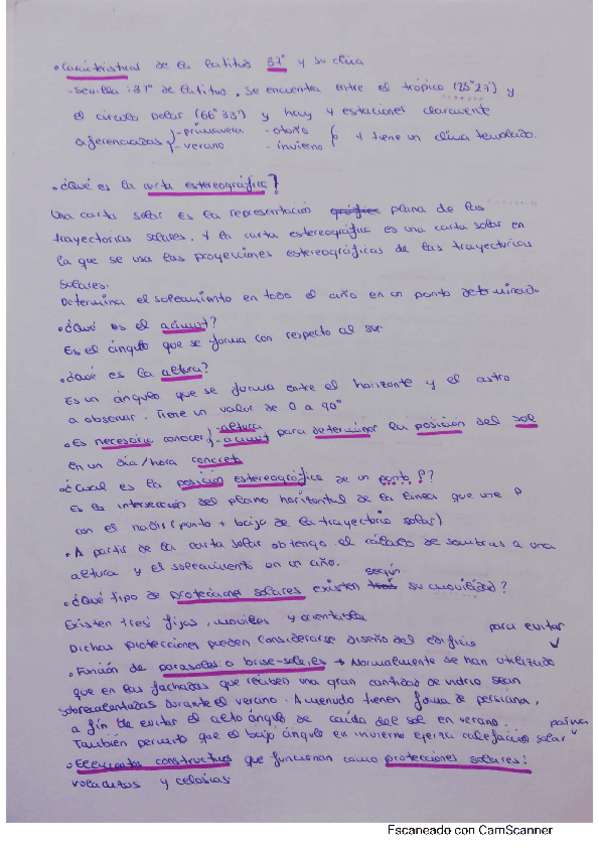 • Características de la latitud 37° y su clima
- Sevilla: 37° de latitud. Se encuentra entre el trópico (23° 27') y
el círculo polar (66° 33') y hay 4 estaciones claramente
diferenciadas - primavera - otoño + tiene un clima templado.
- verano - invierno
• ¿Qué es la carta estereográfica?
Una carta solar es la representación gráfica plana de las
trayectorias solares. Y la carta estereográfica es una carta solar en
la que se usa las proyecciones estereográficas de las trayectorias
solares.
Determina el soleamiento en todo el año en un punto determinado
• ¿Qué es el acimut?
Es el ángulo que se forma con respecto al sur
• ¿Qué es la altura?
Es un ángulo que se forma entre el horizonte y el astro
a observar. Tiene un valor de 0 a 90°
• Es necesario conocer - altura - acimut para determinar la posición del sol
en un día/hora concreta
• ¿Cuál es la posición estereográfica de un punto P?
Es la intersección del plano horizontal de la línea que une P
con el nadir (punto + bajo de la trayectoria solar)
• A partir de la carta solar obtengo el cálculo de sombras a una
altura y el soleamiento en un año.
• ¿Qué tipo de protecciones solares existen según su movilidad?
Existen tres fijos, móviles y orientables
Dichas protecciones pueden considerarse diseño del edificio
• Función de parasoles o brise-soleies → Normalmente se han utilizado para evitar
que en las fachadas que reciben una gran cantidad de vidrio sean
sobrecalentadas durante el verano. A menudo tienen forma de persiana,
a fin de evitar el alto ángulo de caída del sol en verano.
También permite que el bajo ángulo en invierno ejerza calefacción solar pasiva
• Elementos constructivos que funcionan como protecciones solares:
voladizos y celosías
Escaneado con CamScanner